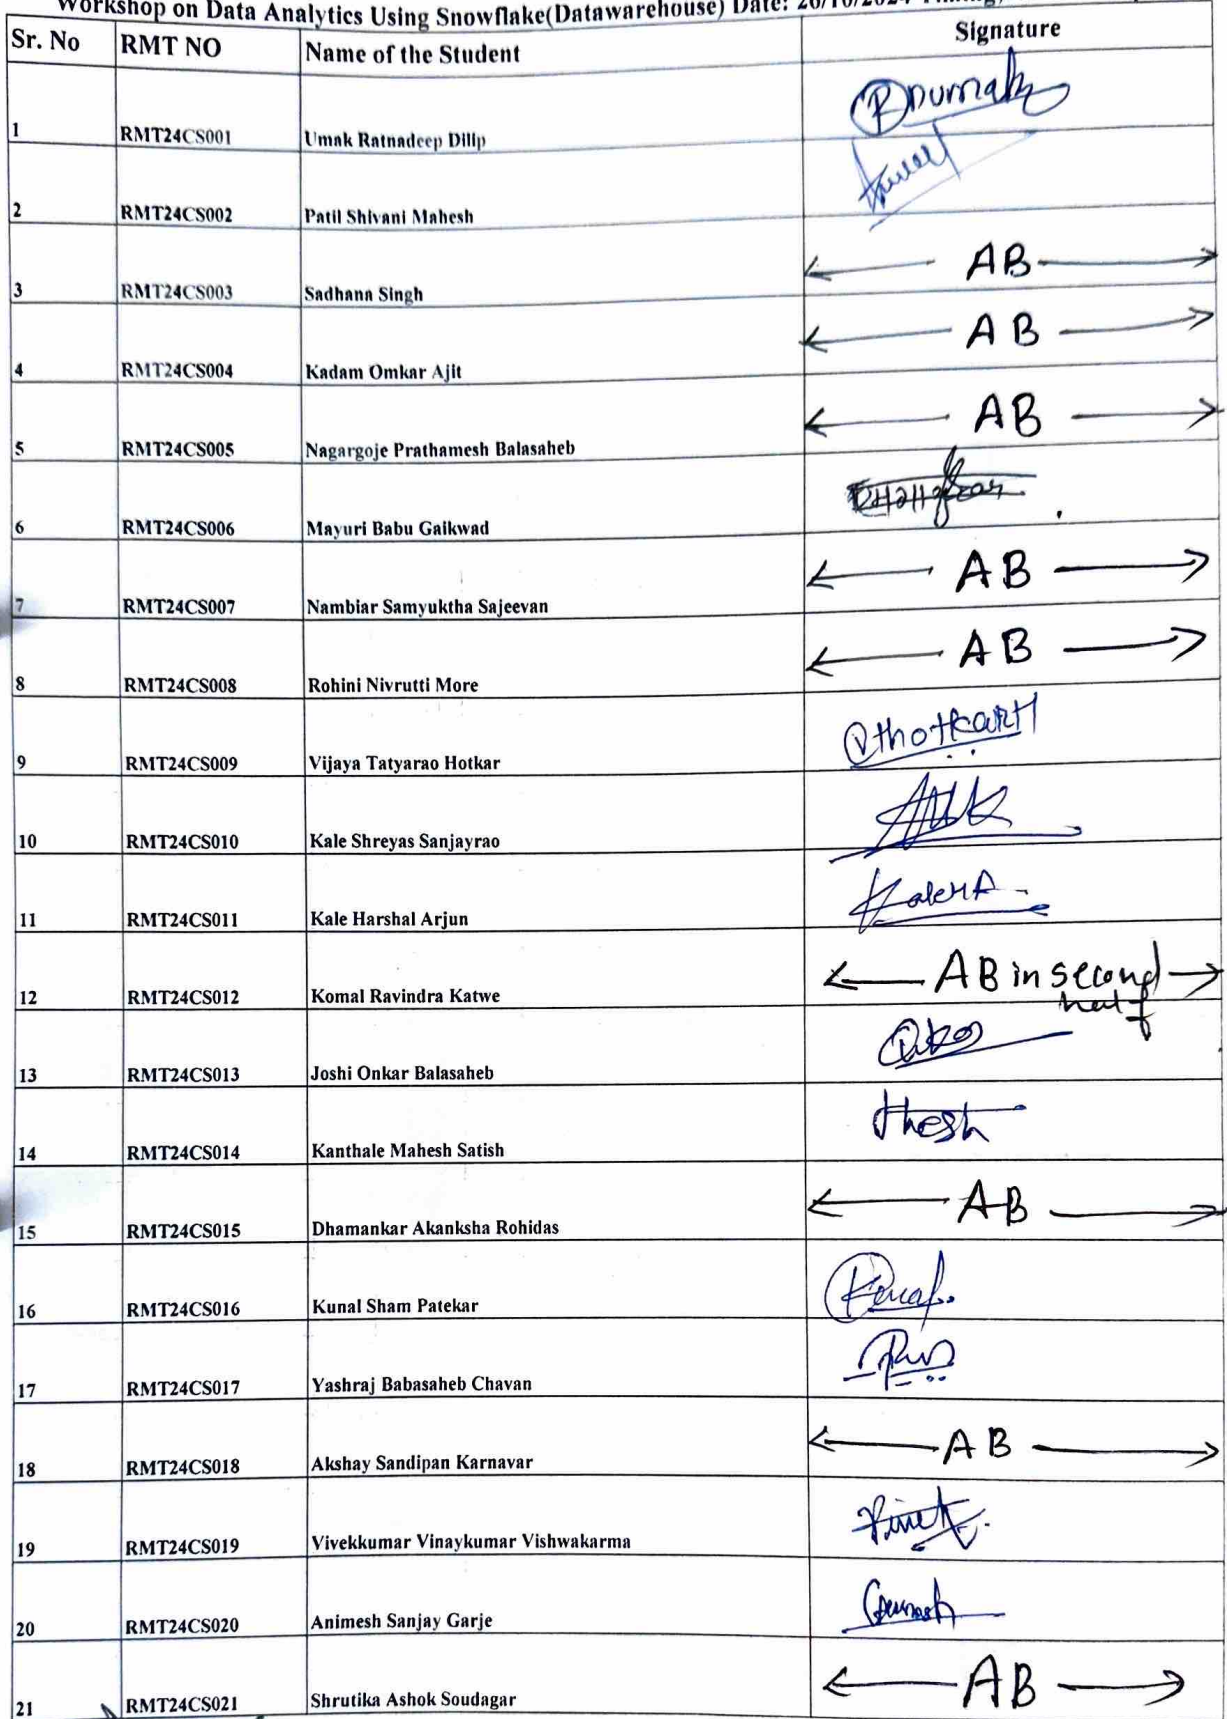 Workshop on Data Analytics Using Snowflake(Datawarehouse) Date: 26/10/2024
Sr. No RMT NO Name of the Student Signature
1 RMT24CS001 Umak Ratnadeep Dilip
2 RMT24CS002 Patil Shivani Mahesh
3 RMT24CS003 Sadhana Singh AB
4 RMT24CS004 Kadam Omkar Ajit AB
5 RMT24CS005 Nagargoje Prathamesh Balasaheb AB
6 RMT24CS006 Mayuri Babu Gaikwad
7 RMT24CS007 Nambiar Samyuktha Sajeevan AB
8 RMT24CS008 Rohini Nivrutti More AB
9 RMT24CS009 Vijaya Tatyarao Hotkar
10 RMT24CS010 Kale Shreyas Sanjayrao
11 RMT24CS011 Kale Harshal Arjun
12 RMT24CS012 Komal Ravindra Katwe AB in second
half
13 RMT24CS013 Joshi Onkar Balasaheb
14 RMT24CS014 Kanthale Mahesh Satish
15 RMT24CS015 Dhamankar Akanksha Rohidas AB
16 RMT24CS016 Kunal Sham Patekar
17 RMT24CS017 Yashraj Babasaheb Chavan
18 RMT24CS018 Akshay Sandipan Karnavar AB
19 RMT24CS019 Vivekkumar Vinaykumar Vishwakarma
20 RMT24CS020 Animesh Sanjay Garje
21 RMT24CS021 Shrutika Ashok Soudagar AB